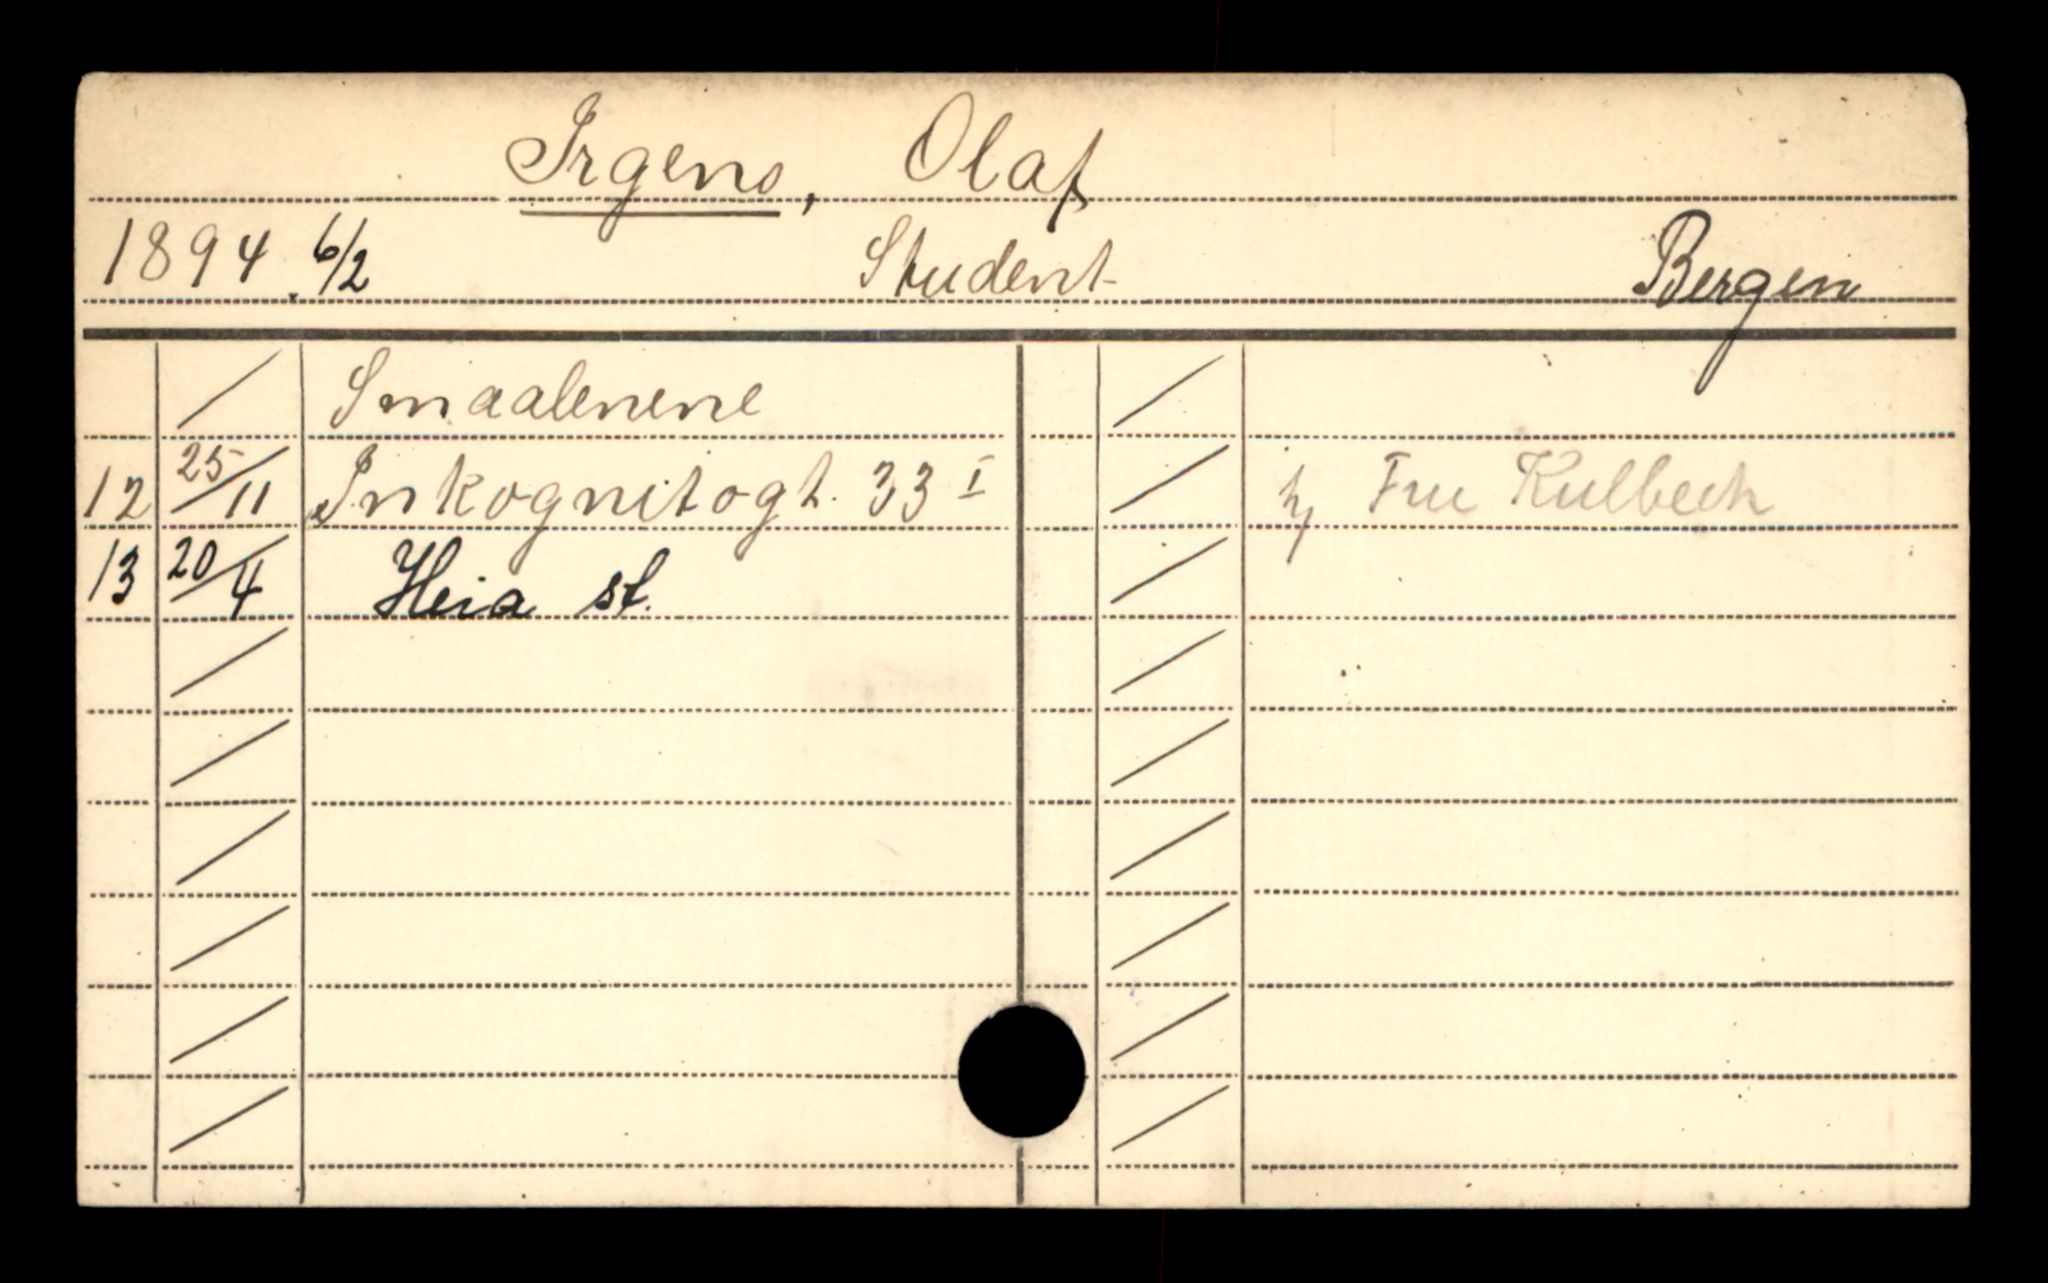 Irgens, Olaf
1894. 6/2 Student Bergen
Smaalenene
12 25/11 Inkognitogt. 33 I h/ Fru Kulbeck
13 20/4 Heia st.